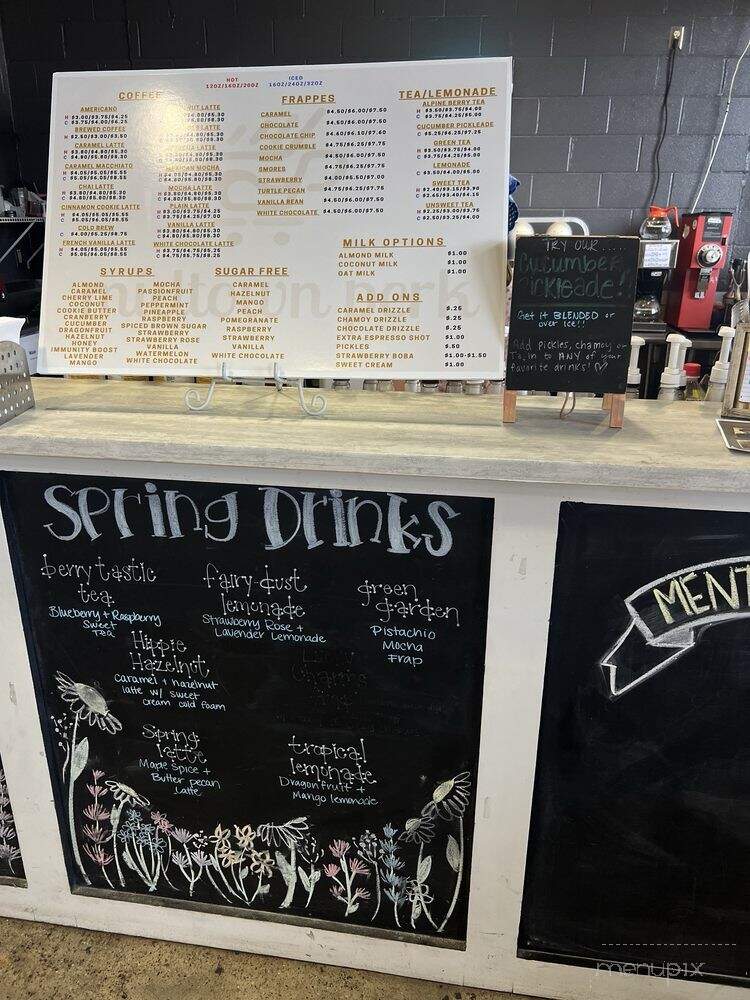 HOT
12OZ/16OZ/20OZ
ICED
16OZ/24OZ/32OZ
COFFEE
AMERICANO
H $3.00/$3.75/$4.25
C $3.75/$4.00/$6.25
BREWED COFFEE
H $2.50/$3.00/$3.50
CARAMEL LATTE
CARAMEL MACCHIATO
CHAI LATTE
CINNAMON COOKIE LATTE
COLD BREW
C $4.00/$5.25/$8.75
FRENCH VANILLA LATTE
LATTE
MEXICAN MOCHA
MOCHA LATTE
PLAIN LATTE
VANILLA LATTE
WHITE CHOCOLATE LATTE
FRAPPES
CARAMEL $4.50/$6.00/$7.50
CHOCOLATE $4.50/$6.00/$7.50
CHOCOLATE CHIP $4.60/$6.10/$7.60
COOKIE CRUMBLE $4.75/$6.25/$7.75
MOCHA $4.50/$6.00/$7.50
SMORES $4.75/$6.25/$7.75
STRAWBERRY $4.00/$5.50/$7.00
TURTLE PECAN $4.75/$6.25/$7.75
VANILLA BEAN $4.50/$6.00/$7.50
WHITE CHOCOLATE $4.50/$6.00/$7.50
TEA/LEMONADE
ALPINE BERRY TEA
H $3.50/$3.75/$4.00
C $3.75/$4.25/$5.00
CUCUMBER PICKLEADE
C $5.25/$6.25/$7.25
GREEN TEA
H $3.50/$3.75/$4.00
C $3.75/$4.25/$5.00
LEMONADE
C $3.50/$4.00/$5.00
SWEET TEA
H $2.40/$3.15/$3.90
C $2.65/$3.40/$4.15
UNSWEET TEA
H $2.25/$3.00/$3.75
C $2.50/$3.25/$4.00
MILK OPTIONS
ALMOND MILK $1.00
COCONUT MILK $1.00
OAT MILK $1.00
SYRUPS
ALMOND
CARAMEL
CHERRY LIME
COCONUT
COOKIE BUTTER
CRANBERRY
CUCUMBER
DRAGONFRUIT
HAZELNUT
HONEY
IMMUNITY BOOST
LAVENDER
MANGO
MOCHA
PASSIONFRUIT
PEACH
PEPPERMINT
PINEAPPLE
RASPBERRY
SPICED BROWN SUGAR
STRAWBERRY
STRAWBERRY ROSE
VANILLA
WATERMELON
WHITE CHOCOLATE
SUGAR FREE
CARAMEL
HAZELNUT
MANGO
PEACH
POMEGRANATE
RASPBERRY
STRAWBERRY
VANILLA
WHITE CHOCOLATE
ADD ONS
CARAMEL DRIZZLE $.25
CHAMOY DRIZZLE $.25
CHOCOLATE DRIZZLE $.25
EXTRA ESPRESSO SHOT $1.00
PICKLES $.50
STRAWBERRY BOBA $1.00-$1.50
SWEET CREAM $1.00
TRY OUR....
Cucumber
Pickleade!
Get it BLENDED or
over ice!!
Add pickles, chamoy or
Tajin to ANY of your
favorite drinks!
Spring Drinks
berrytastic
tea
Blueberry + Raspberry
Sweet
Tea
fairy dust
lemonade
Strawberry Rose +
Lavender Lemonade
green
garden
Pistachio
Mocha
Frap
Hippie
Hazelnut
Caramel + hazelnut
latte w/ sweet
cream cold foam
Spring
latte
Maple Spice +
Butter pecan
Latte
tropical
lemonade
Dragonfruit +
Mango lemonade
MENT
menupix